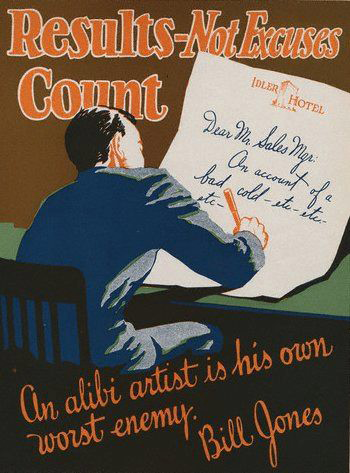 Results-Not Excuses
Count
IDLER
HOTEL
Dear Mr. Sales Mgr:
On account of a
bad cold-etc-etc-
etc-
An alibi artist is his own
worst enemy.
Bill Jones